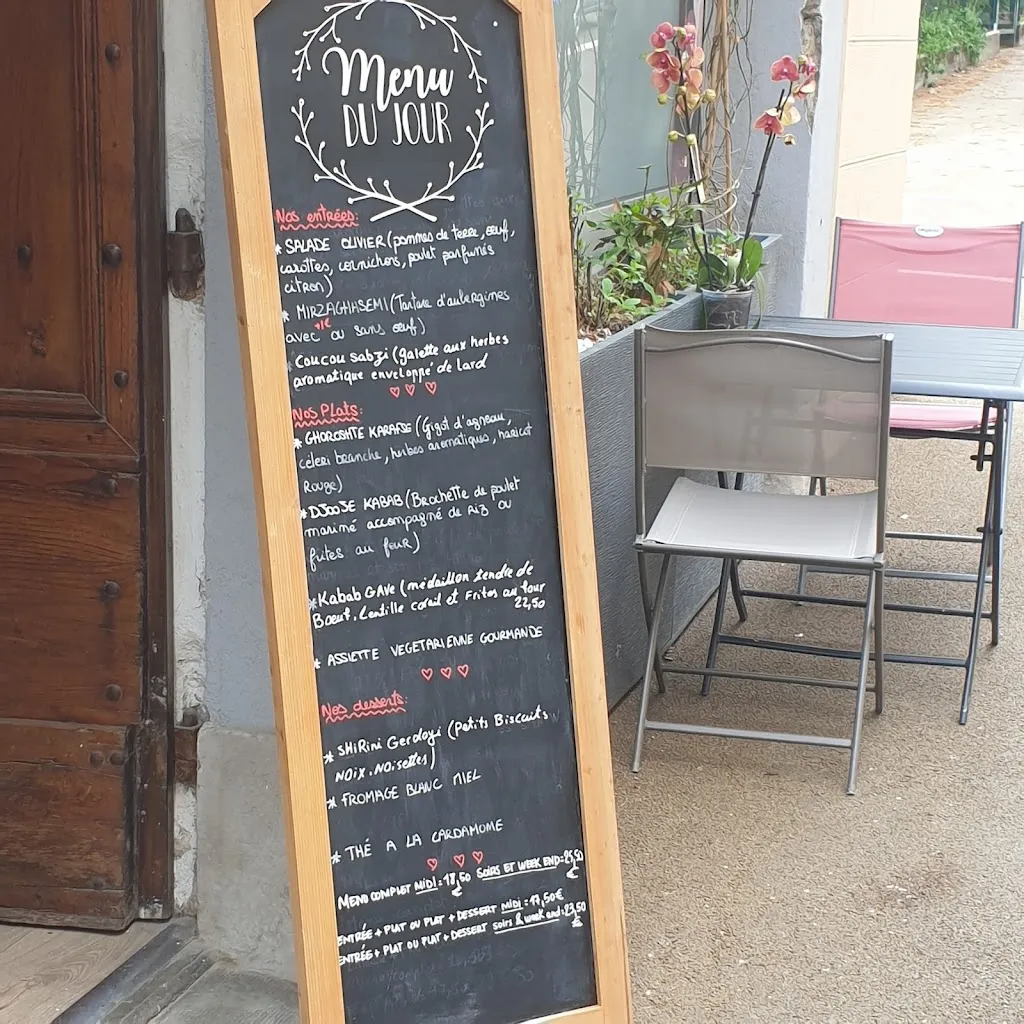 Menu
DU JOUR
Nos entrées:
* SALADE OLIVIER (pommes de terre, œuf,
carottes, cornichons, poulet parfumés
citron)
* MIRZAGHASEMI (Tartare d'aubergines
avec ou sans œuf)
* Coucou Sabzi (galette aux herbes
aromatique enveloppé de lard
Nos Plats:
* GHOROSHTE KARAFSE (Gigot d'agneau,
céleri branche, herbes aromatiques, haricot
Rouge)
* DJOOJE KABAB (Brochette de poulet
mariné accompagné de Riz ou
frites au four)
* Kabab GAVE (médaillon tendre de
Boeuf, Lentille corail et Frites au four
22,50
* ASSIETTE VEGETARIENNE GOURMANDE
Nos desserts:
* SHIRINI Gerdoyi (Petits Biscuits
NOIX, NOISETTES)
* FROMAGE BLANC MIEL
* THÉ A LA CARDAMOME
MENU COMPLET MIDI = 18,50 SOIRS ET WEEK END = 25,50
€ €
ENTRÉE + PLAT OU PLAT + DESSERT MIDI = 17,50€
ENTRÉE + PLAT OU PLAT + DESSERT soirs & week end = 23,50
€